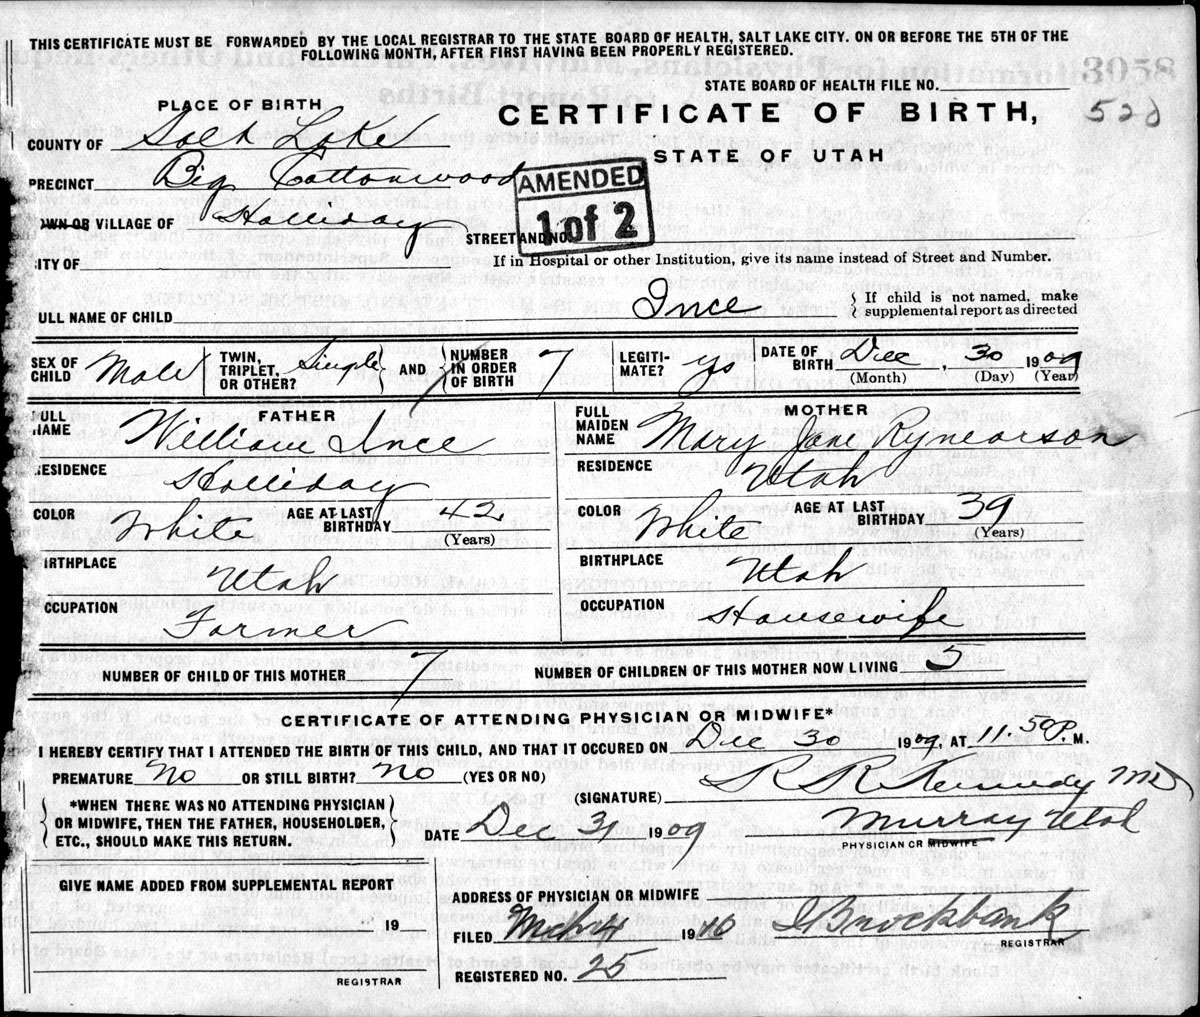 THIS CERTIFICATE MUST BE FORWARDED BY THE LOCAL REGISTRAR TO THE STATE BOARD OF HEALTH, SALT LAKE CITY. ON OR BEFORE THE 5TH OF THE
FOLLOWING MONTH, AFTER FIRST HAVING BEEN PROPERLY REGISTERED.
3058
STATE BOARD OF HEALTH FILE NO.
520
PLACE OF BIRTH
CERTIFICATE OF BIRTH,
STATE OF UTAH
COUNTY OF Salt Lake
PRECINCT Big Cottonwood
AMENDED
1 of 2
OWN OR VILLAGE OF Holliday
STREET AND NO.
ITY OF
If in Hospital or other Institution, give its name instead of Street and Number.
ULL NAME OF CHILD Ince
If child is not named, make supplemental report as directed
SEX OF CHILD Male
TWIN, TRIPLET, OR OTHER? Single AND NUMBER IN ORDER OF BIRTH 7
LEGITI-MATE? yes
DATE OF BIRTH Dec, 30 1909
(Month) (Day) (Year)
FATHER
ULL NAME William Ince
RESIDENCE Holliday
COLOR White AGE AT LAST BIRTHDAY 42
(Years)
IRTHPLACE Utah
CCUPATION Farmer
MOTHER
FULL MAIDEN NAME Mary Jane Rynearson
RESIDENCE Utah
COLOR White AGE AT LAST BIRTHDAY 39
(Years)
BIRTHPLACE Utah
OCCUPATION Housewife
NUMBER OF CHILD OF THIS MOTHER 7 NUMBER OF CHILDREN OF THIS MOTHER NOW LIVING 5
CERTIFICATE OF ATTENDING PHYSICIAN OR MIDWIFE*
I HEREBY CERTIFY THAT I ATTENDED THE BIRTH OF THIS CHILD, AND THAT IT OCCURED ON Dec 30 1909, AT 11.50 P. M.
PREMATURE No OR STILL BIRTH? No (YES OR NO)
(SIGNATURE) R R Kennedy MD
*WHEN THERE WAS NO ATTENDING PHYSICIAN
OR MIDWIFE, THEN THE FATHER, HOUSEHOLDER,
ETC., SHOULD MAKE THIS RETURN.
DATE Dec 31 1909
Murray Utah
PHYSICIAN OR MIDWIFE
GIVE NAME ADDED FROM SUPPLEMENTAL REPORT
19
REGISTRAR
ADDRESS OF PHYSICIAN OR MIDWIFE
FILED Mch 4 1910 Brockbank
REGISTRAR
REGISTERED NO. 25